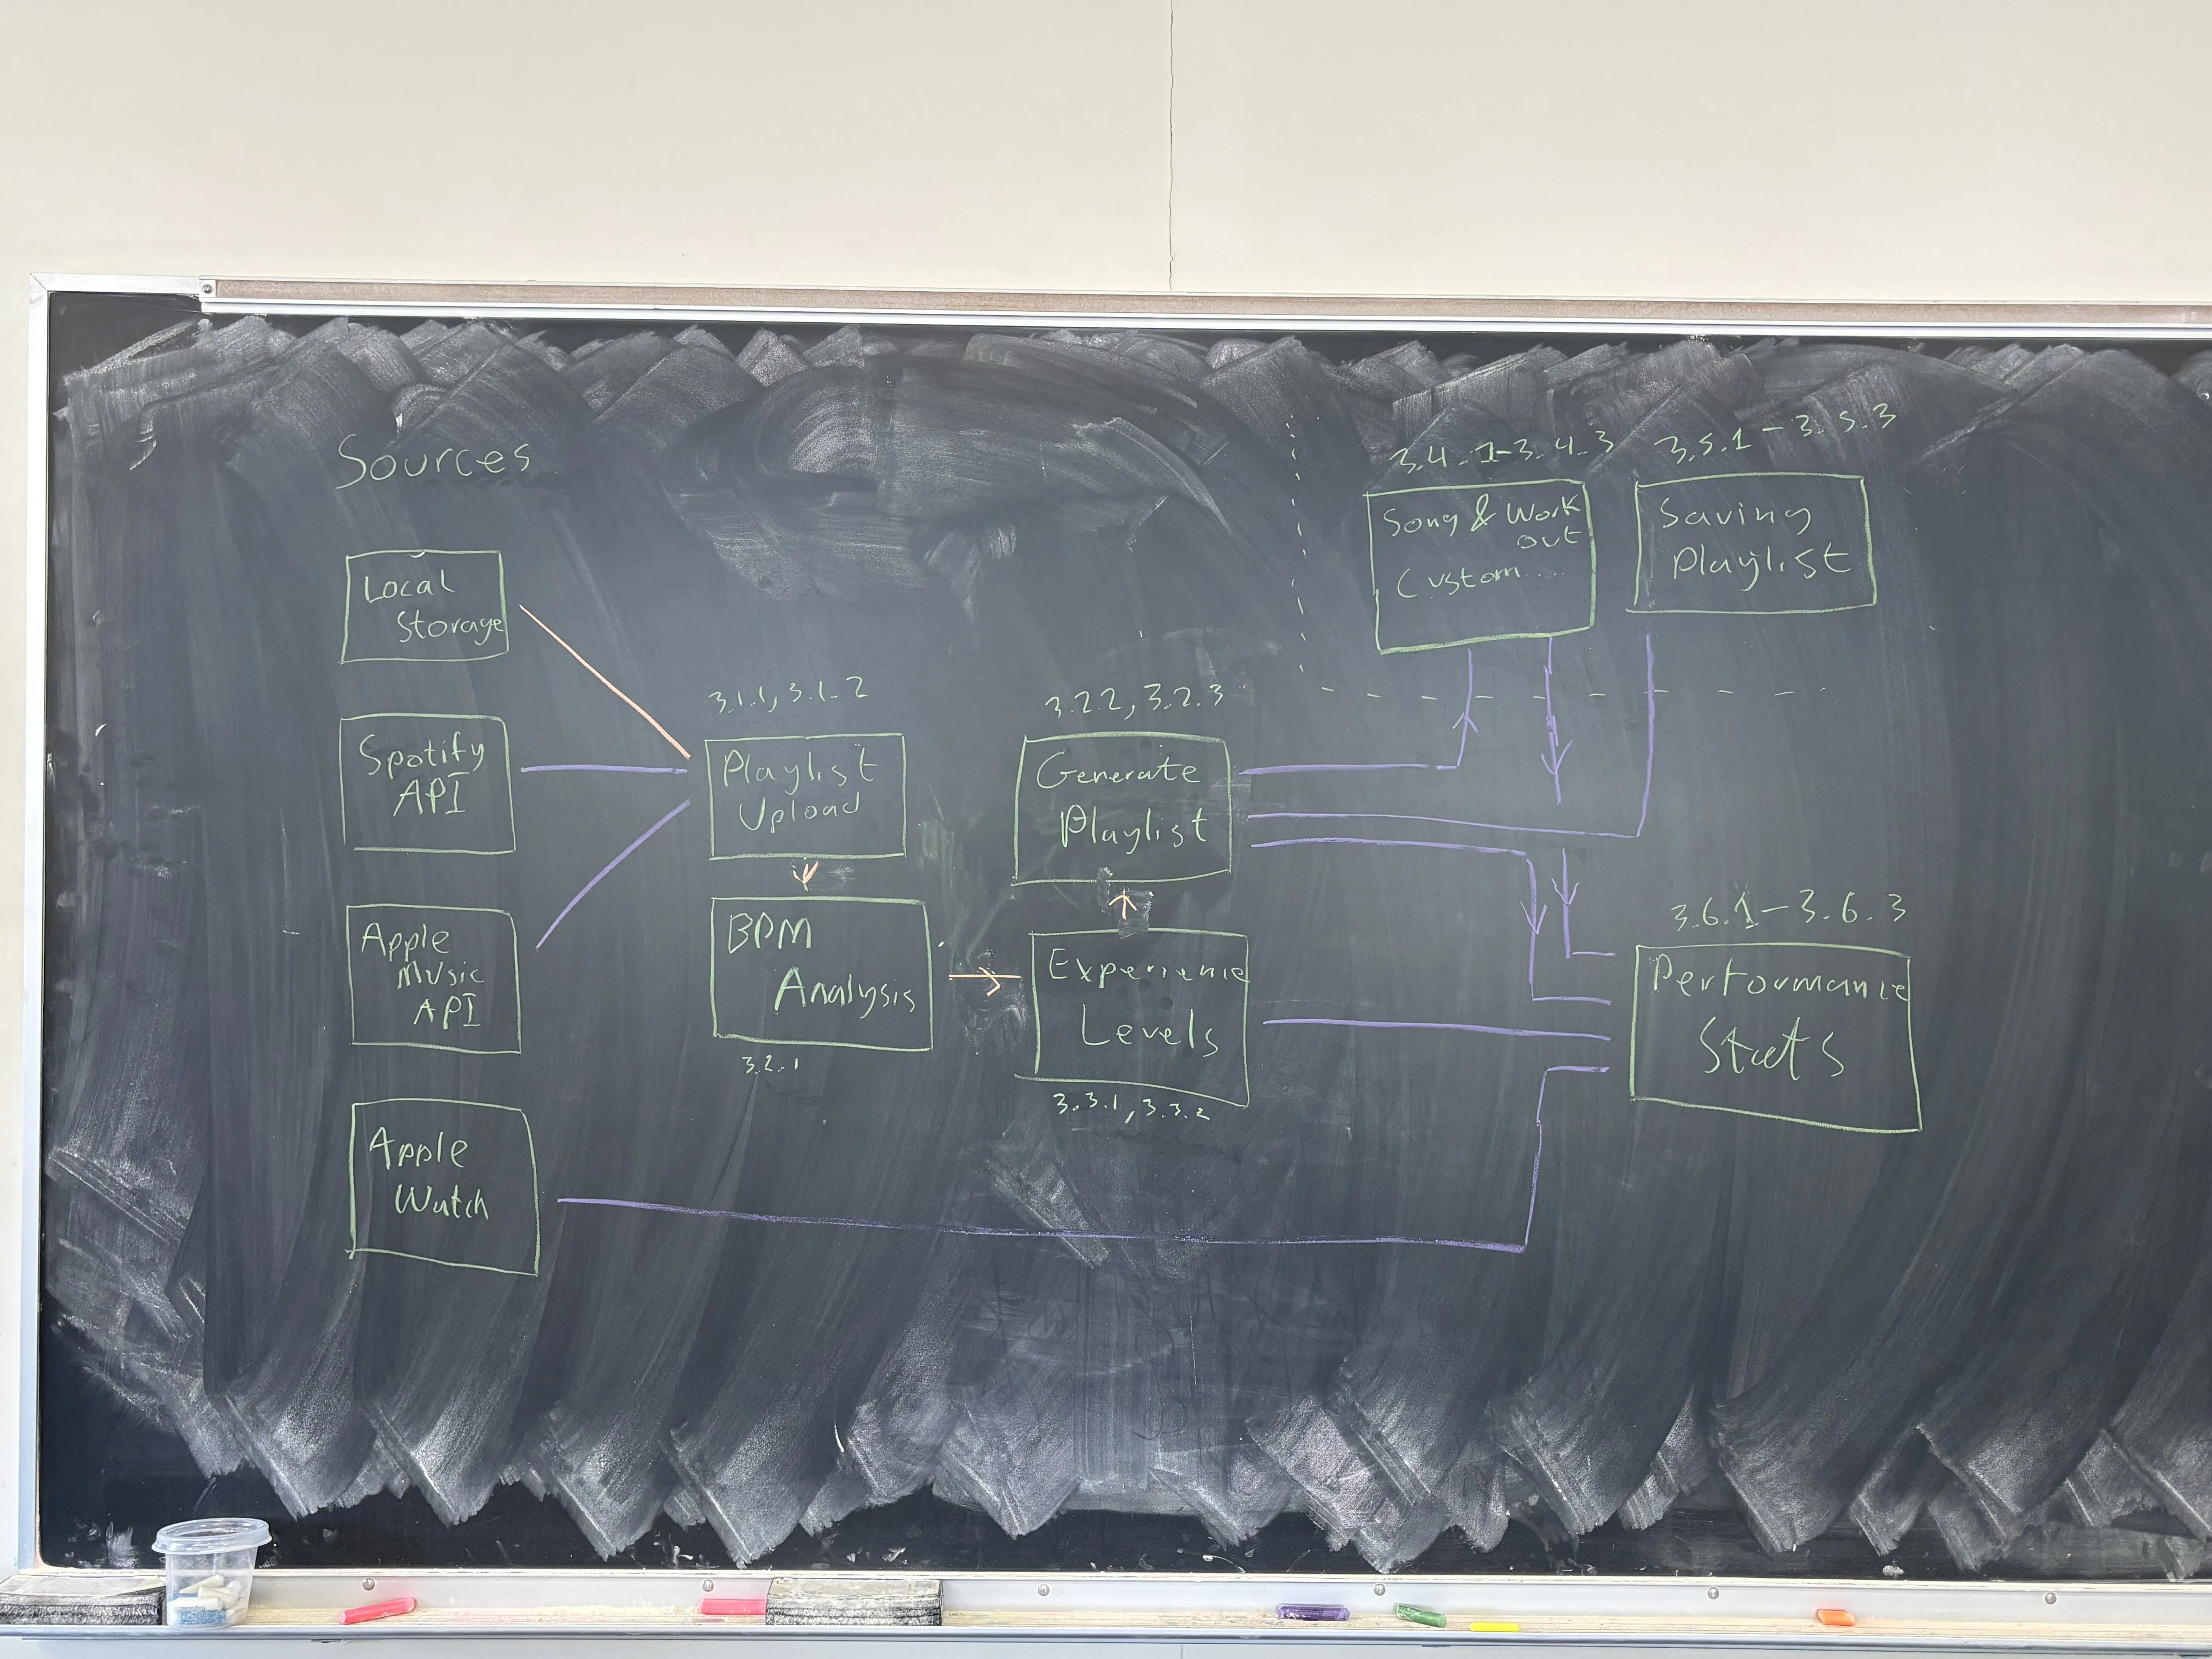 Sources
Local
Storage
Spotify
API
Apple
Music
API
Apple
Watch
3.1.1, 3.1.2
Playlist
Upload
BPM
Analysis
3.2.1
3.2.2, 3.2.3
Generate
Playlist
Experience
Levels
3.3.1, 3.3.2
3.4.1-3.4.3
Song & Work
out
Custom...
3.5.1-3.5.3
Saving
Playlist
3.6.1-3.6.3
Performance
Stats